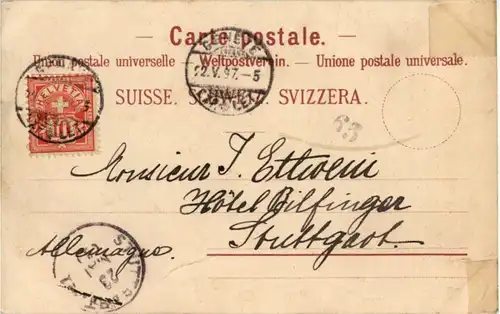 Carte postale.
Union postale universelle. — Weltpostverein. — Unione postale universale.
SUISSE. SVIZZERA.
GENÈVE
22.V.97.-5
HELVETIA
63
Monsieur J. Ettwein
Hôtel Bilfinger
Stuttgart.
Allemagne.
23
MAI